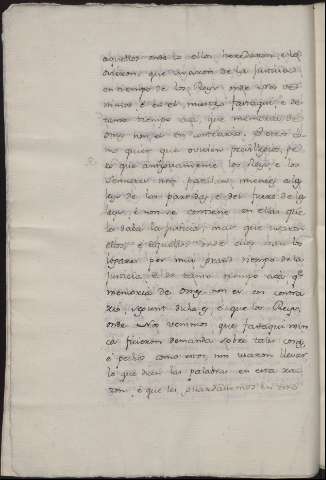 aquellos onde lo ellos heredaron, e los
ovieron, que usaron de la Justicia
en tiempo de los Reys onde Nos ve
nimos é es el nuestro fasta aqui, é de
tanto tiempo acá, que memoria de
omes non es en contrario. Otrosi co
mo quier que ovieron privilegios, pe
ro que antiguamente los Reys, é los
Señores
leys de las partidas, é del fuero de las
leys, é non se contiene en ellas que
les daba la Justicia, mas que usaron
ellos, é aquellos onde ellos
lugares por muy grand tiempo de la
Justicia é de tanto tiempo acá que
memoria de omes non es en contra
rio, segunt dicho es, é que los Reys,
onde Nos venimos que fasta aqui nun
ca fueron demanda sobre tales cosas,
é pedido como eros, non usaron llevar
lo que dicen las palabras en esta ra
zon, é que les guardasemos en esto